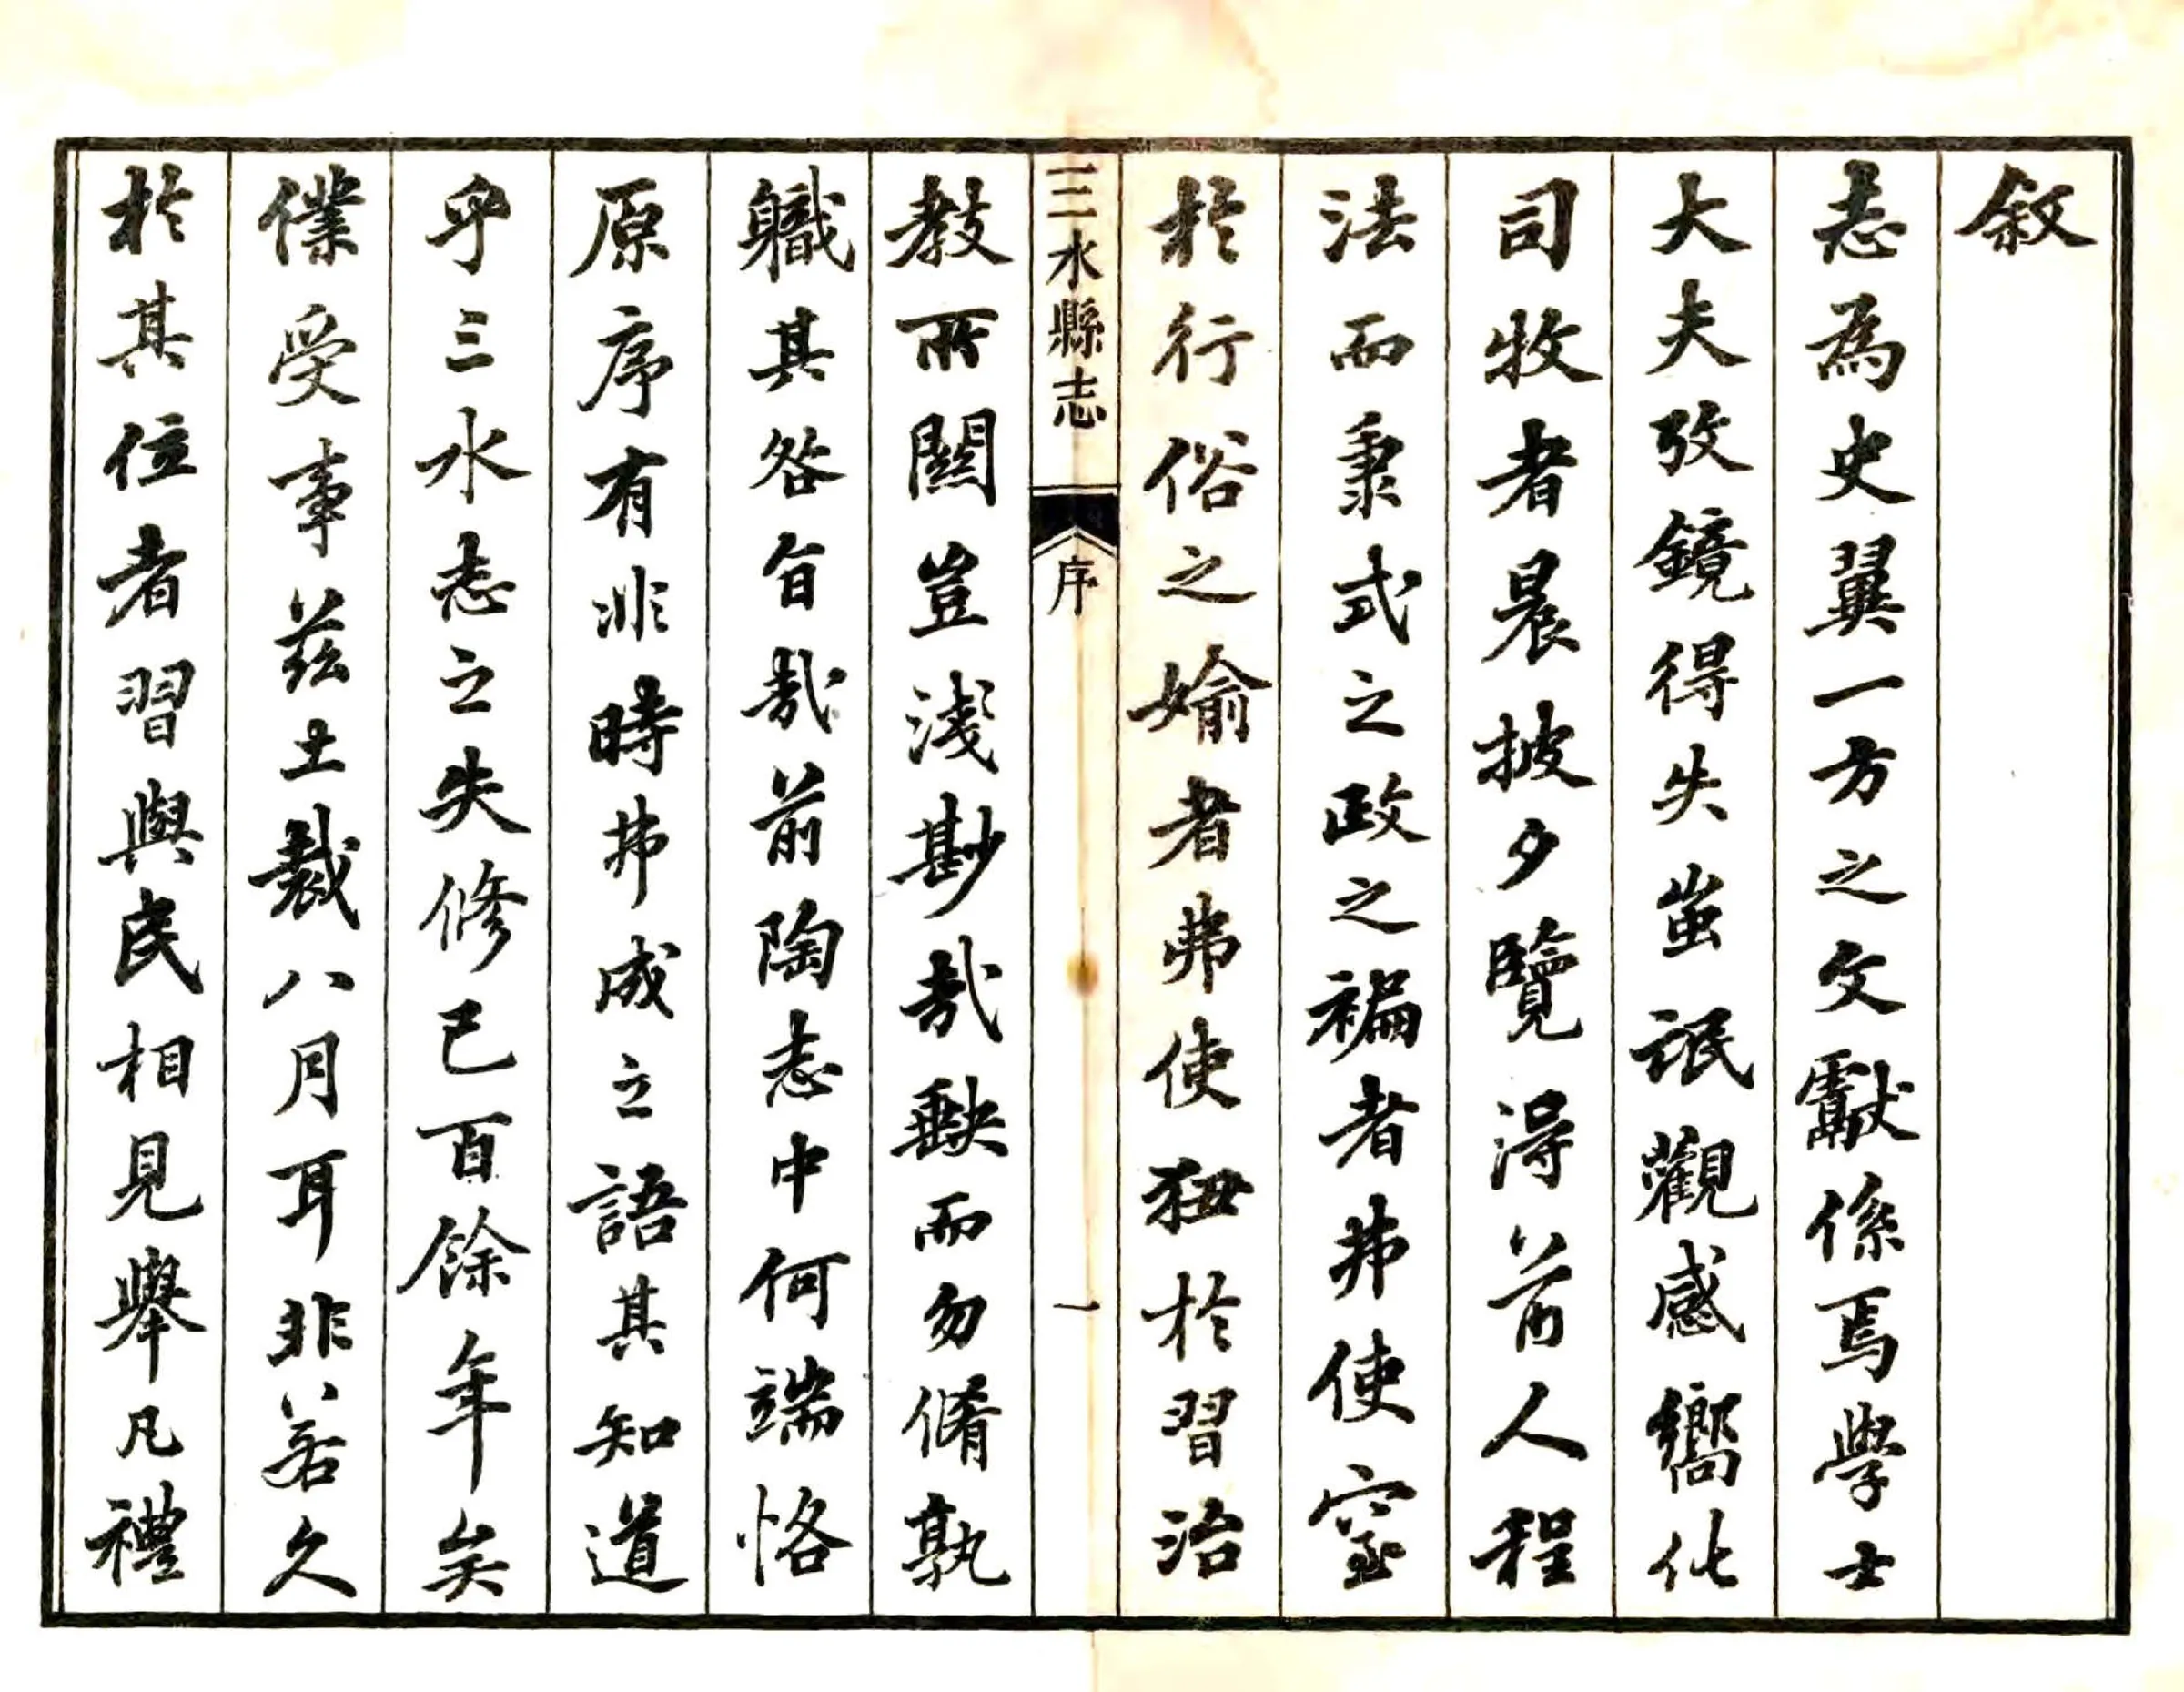 叙
志為史翼一方之文獻係焉學士
大夫攷鏡得失蚩氓觀感嚮化
司牧者晨披夕覽得前人程
法而秉式之政之褊者弗使窒
於行俗之媮者弗使狃於習治
三水縣志 序 一
教所關豈淺尠哉缺而勿脩孰
職其咎旨哉前陶志中何端恪
原序有非時弗成之語其知道
乎三水志之失修已百餘年矣
僕受事茲土裁八月耳非若久
於其位者習與民相見舉凡禮